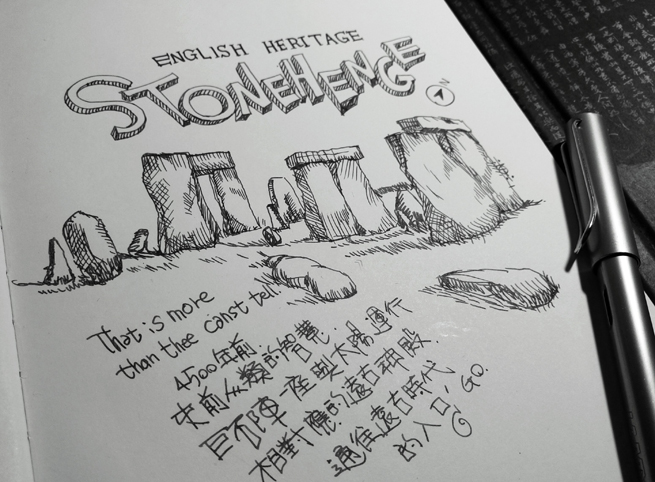 ENGLISH HERITAGE
STONEHENGE
That is more
than thee canst tell.
4500年前,
史前人類的智慧.
巨石陣一座與太陽運行
相對應的遠古神殿.
通往遠古時代
的入口, GO.